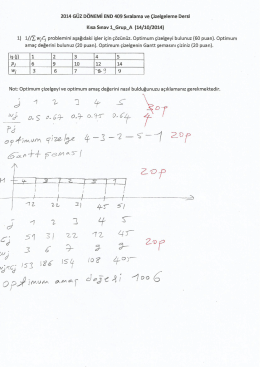 2014 GÜZ DÖNEMİ END 409 Sıralama ve Çizelgeleme Dersi
Kısa Sınav 1_Grup_A (14/10/2014)
1) 1//∑ wjCj problemini aşağıdaki işler için çözünüz. Optimum çizelgeyi bulunuz (60 puan). Optimum
amaç değerini bulunuz (20 puan). Optimum çizelgenin Gantt şemasını çiziniz (20 puan).
1 2 3 4 5
pj 8 9 10 12 14
wj 3 6 7 9
Not: Optimum çizelgeyi ve optimum amaç değerini nasıl bulduğunuzu açıklamanız gerekmektedir.
j 1 2 3 4 5
wj/pj 0.67 0.7 0.75 0.64
20p
optimum çizelge 4-3-2-5-1 20p
Gantt şeması
20p
12 22 31 45 51
j 1 2 3 4 5
Cj 51 31 22 12 45
wj 3 6 7 9 9
20p
wjCj 153 186 154 108 405
optimum amaç değeri 1006